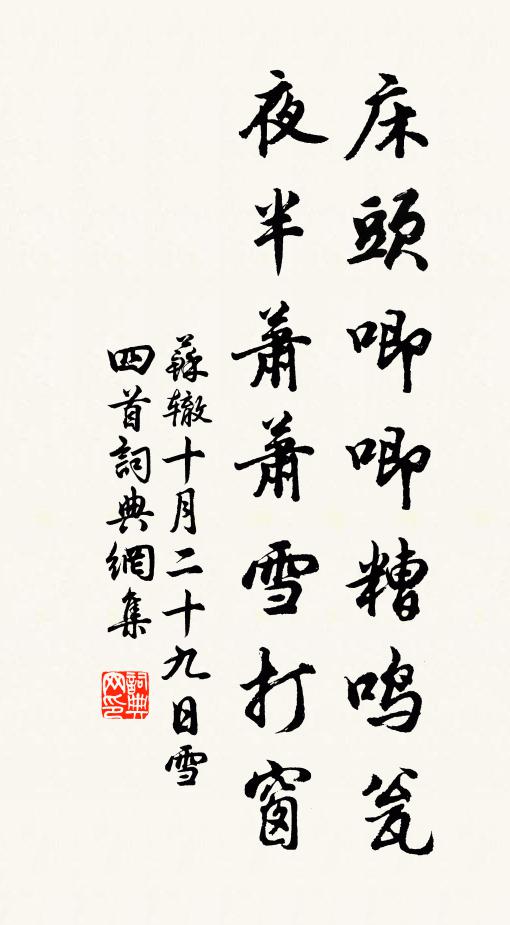 床頭唧唧糟鳴瓮
夜半蕭蕭雪打窗
蘇辙十月二十九日雪
四首詞典網集
詞典网印